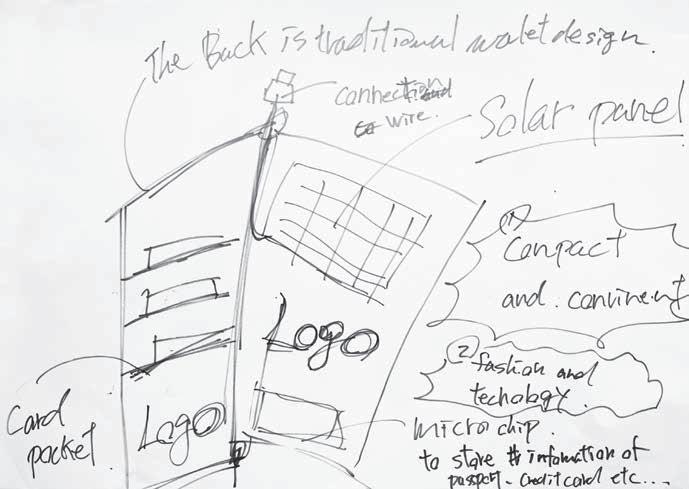 The Back is traditional walet design.
connection
wire.
Solar panel
(1)
Conpact
and. convinent
Logo
(2) fashion and
techology.
Card
pocket
Logo
microchip.
to store # infomation of
passport. Credit card etc....